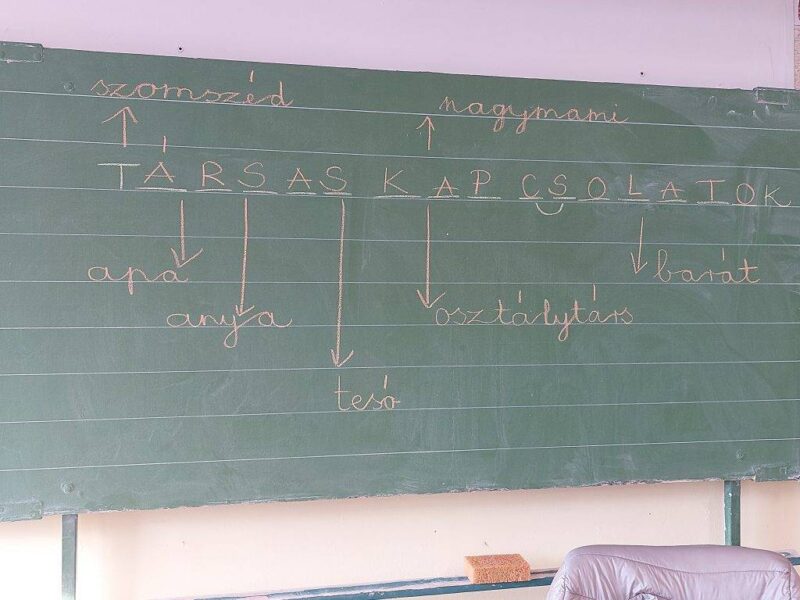 szomszéd
nagymami
TÁRSAS KAPCSOLATOK
apa
barát
anya
osztálytárs
tesó